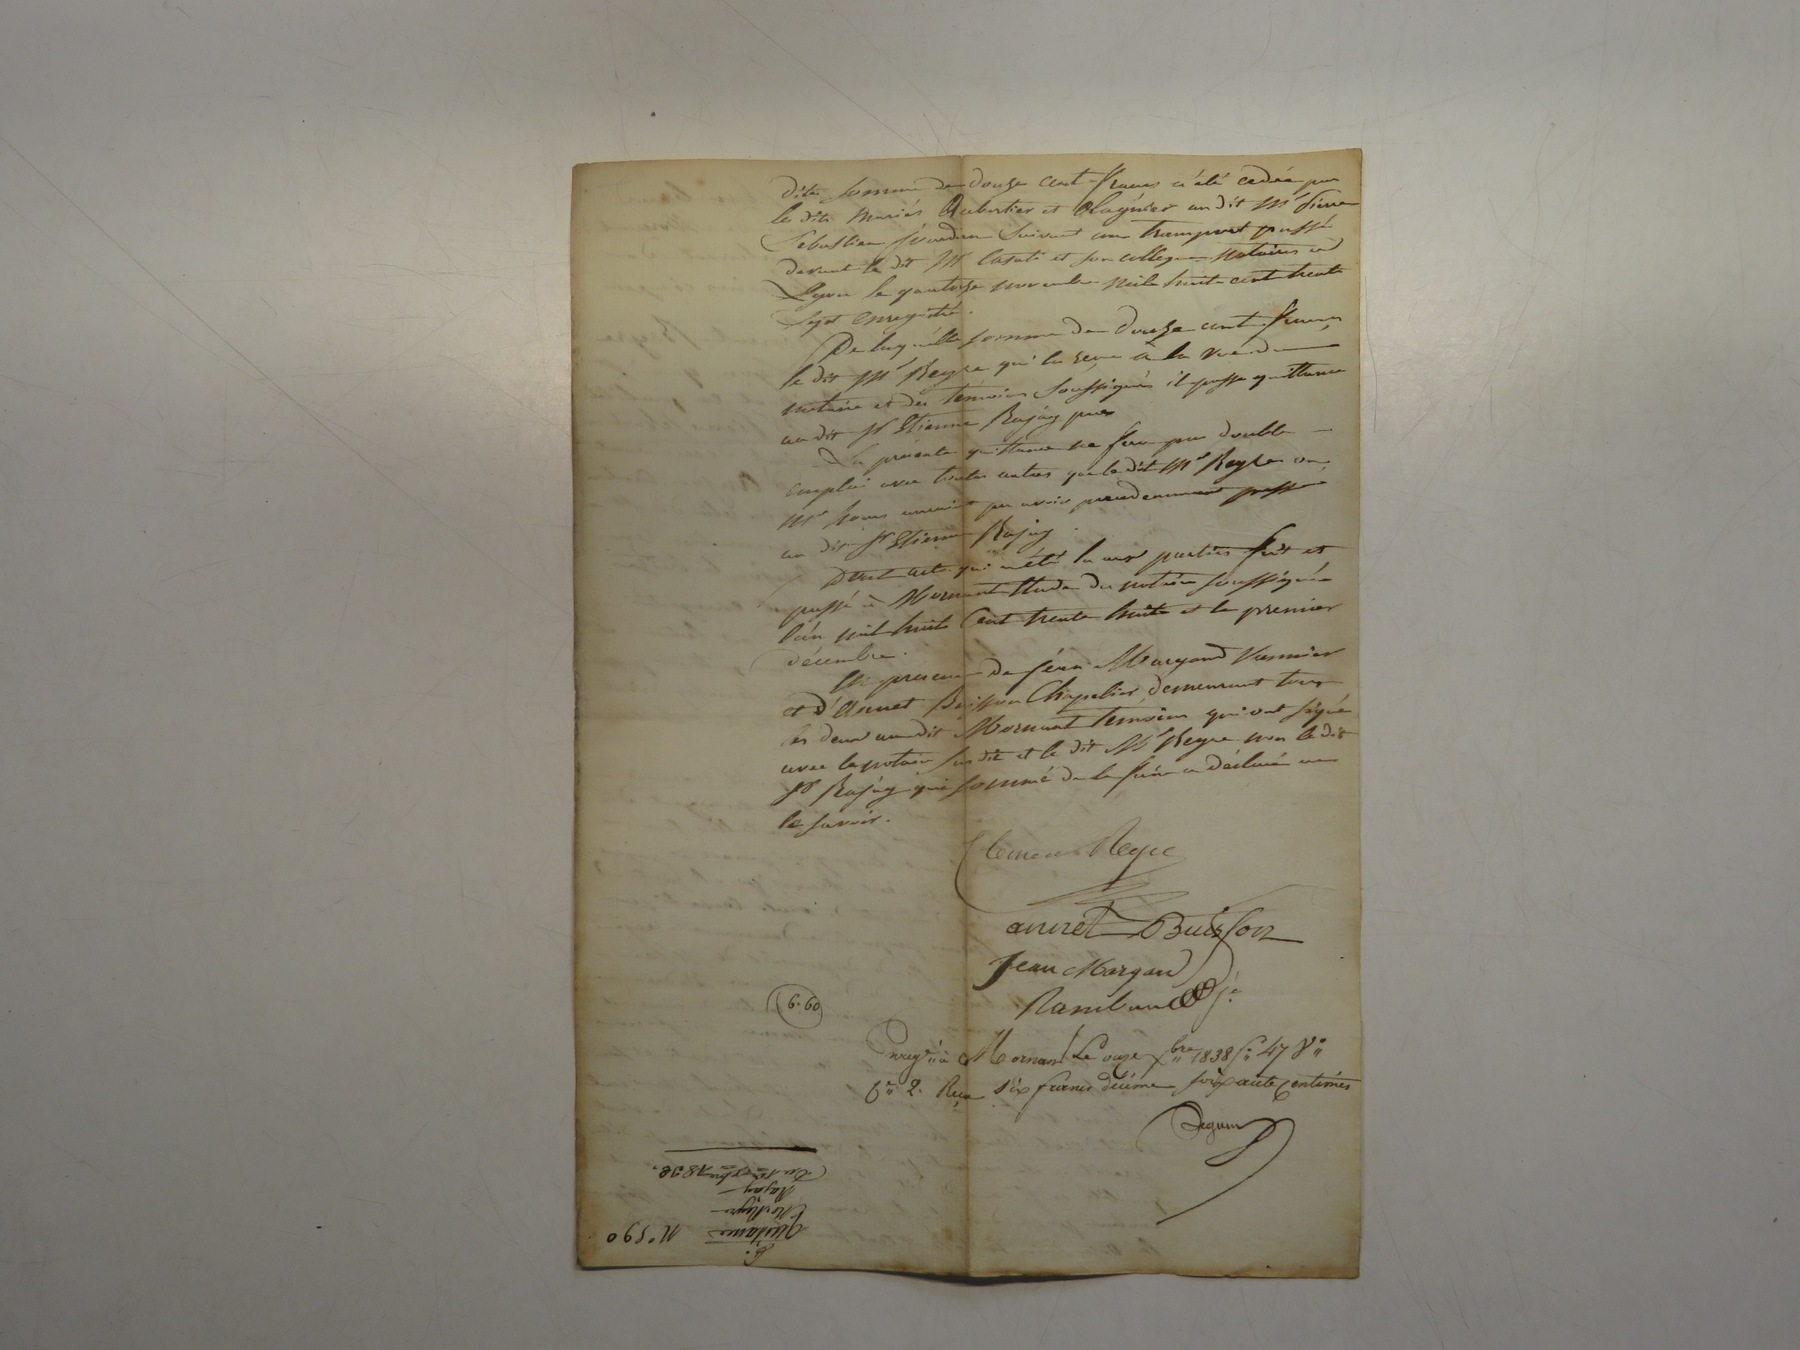 dite somme de douze cent francs a été cédée par
le dits mariés Aubertier et Blagnier au dit Mr Pierre
Sébastien suivant un transport passé
devant le dit Me Casati et son collègue notaires à
Lyon le quatorze novembre mil huit cent trente
sept enregistré.
De laquelle somme de douze cent francs,
le dit Mr Reyre qui l'a reçue à la vue du
notaire et des témoins soussignés il passe quittance
au dit Sr Etienne Rajay
La présente quittance ne fera pas double
emploi avec toutes autres que le dit Mr Reyre ou
Me auraient pu avoir précédemment passé
au dit Sr Etienne Rajay
Dont acte qui a été lu aux parties fait et
passé à Mornant étude du notaire soussigné
l'an mil huit cent trente huit et le premier
décembre.
En présence de Jean Margand Vannier
et d'Annet Buisson Chapelier, demeurant tous
les deux au dit Mornant témoins qui ont signé
avec le notaire sus dit et le dit Mr Reyre non le dit
Sr Rajay qui sommé de le faire a déclaré ne
le savoir.
Clemen Reyre
annet Buisson
Jean Margand
6.60
Enregré à Mornant Le onze Xbre 1838 fo 47 Vo
Ce 2. Reçu six francs décime soixante centimes
Seguin
Quittance
Mr Reyre
Rajay
Du 1er Xbre 1838.
No 590